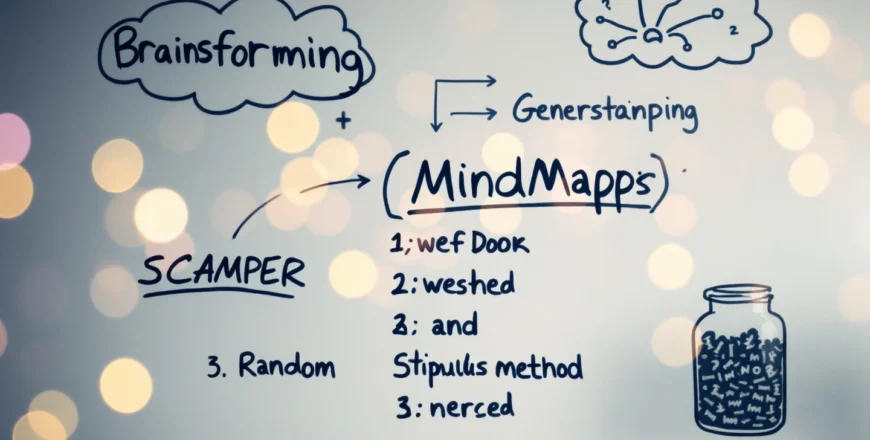 Brainsforming
2
+
Generstainping
(MindMapp's)
SCAMPER
1; wef Dook
2: weshed
3: and
3. Random
Stipulus method
3: nerced